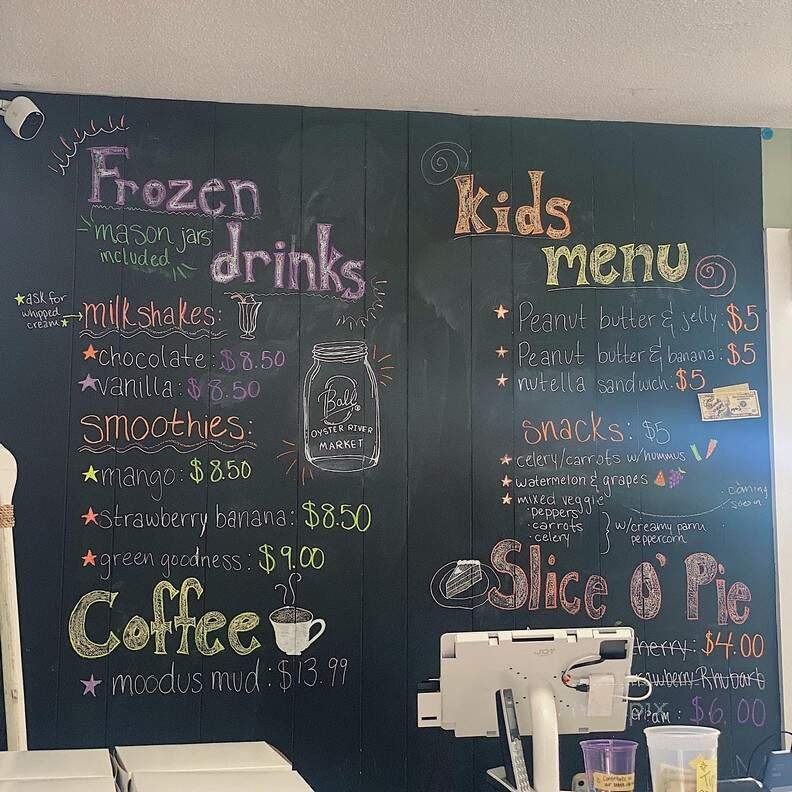 Frozen
drinks
mason jars
included
*ask for
whipped
cream*
milkshakes:
chocolate: $8.50
vanilla: $8.50
smoothies:
mango: $8.50
strawberry banana: $8.50
green goodness: $9.00
Ball
OYSTER RIVER
MARKET
Coffee
moodus mud: $13.99
kids
menu
Peanut butter & jelly: $5
Peanut butter & banana: $5
nutella sandwich: $5
snacks: $5
celery/carrots w/hummus
watermelon & grapes
mixed veggie
peppers
carrots
celery
w/creamy parm
peppercorn
coming
soon
Slice O' Pie
cherry: $4.00
strawberry-Rhubarb
cream: $6.00